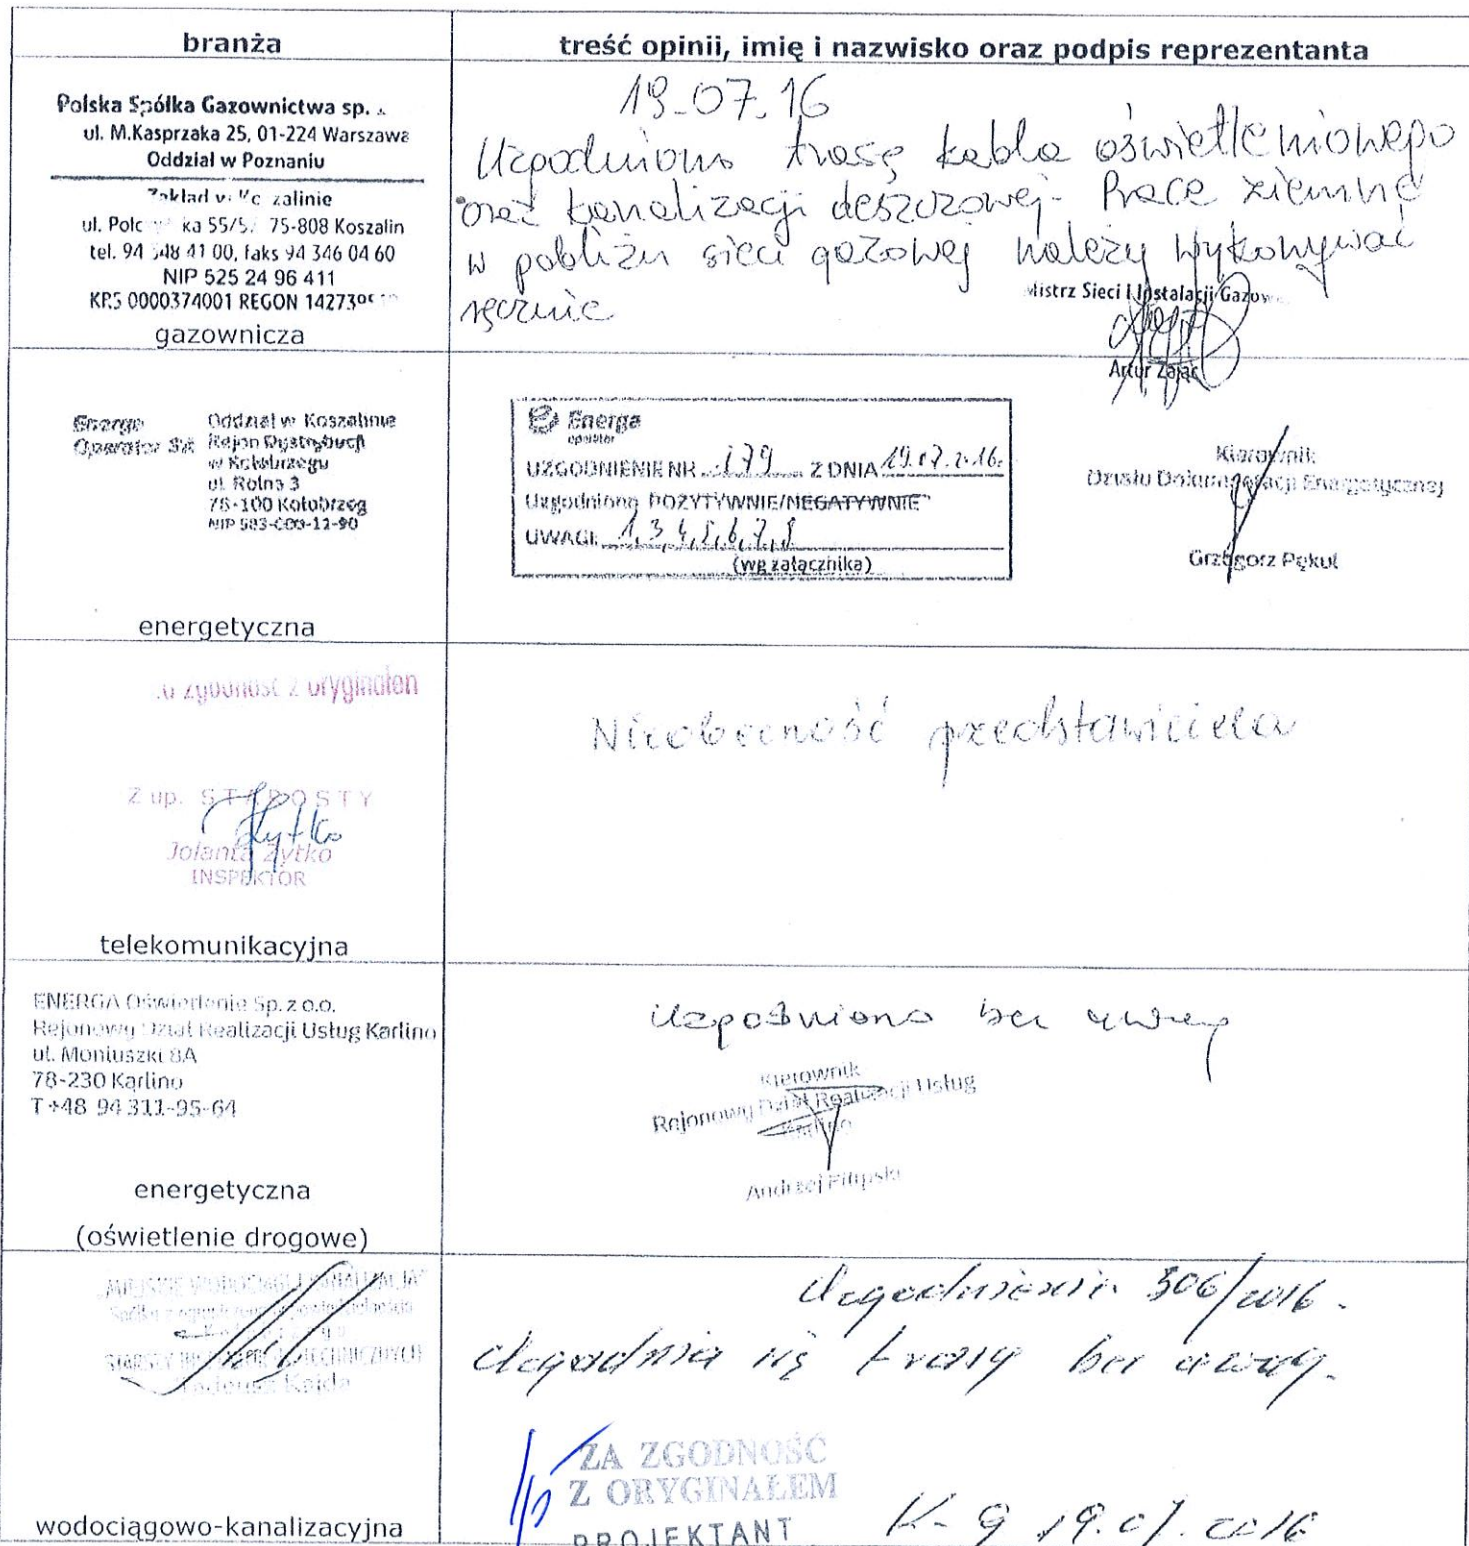 branża
treść opinii, imię i nazwisko oraz podpis reprezentanta
Polska Spółka Gazownictwa sp.
ul. M.Kasprzaka 25, 01-224 Warszawa
Oddział w Poznaniu
Zakład w zalinie
ul. Połc ka 55/5 75-808 Koszalin
tel. 94 348 41 00, faks 94 346 04 60
NIP 525 24 96 411
KRS 0000374001 REGON 14273
gazownicza
19.07.16
Uzgodniono trasę kabla oświetleniowego
oraz kanalizacji deszczowej. Prace ziemne
w pobliżu sieci gazowej należy wykonywać
ręcznie
Mistrz Sieci i Instalacji Gazow
Artur Zając
Energa Operator SA
Oddział w Koszalinie
Rejon Dystrybucji
w Kołobrzegu
ul. Rolna 3
78-100 Kołobrzeg
NIP 583-000-11-90
energetyczna
Energa
operator
UZGODNIENIE NR 179 Z DNIA 19.07.2016.
Uzgodniono POZYTYWNIE/NEGATYWNIE*
UWAGI: 1, 3, 4, 5, 6, 7, 8
(wg załącznika)
Kierownik
Działu Dokumentacji Energetycznej
Grzegorz Pękul
zgodność z oryginałem
Z up. STAROSTY
Jolanta Żytko
INSPEKTOR
telekomunikacyjna
Nieobecność przedstawiciela
ENERGA Oświetlenie Sp. z o.o.
Rejonowy Dział Realizacji Usług Karlino
ul. Moniuszki 8A
78-230 Karlino
T +48 94 311-95-64
energetyczna
(oświetlenie drogowe)
Uzgodniono bez uwag
Kierownik
Rejonowy Dział Realizacji Usług
Karlino
Andrzej Filipski
MIEJSKIE WODOCIĄGI I KANALIZACJA"
Tadeusz Kajda
wodociągowo-kanalizacyjna
Uzgodnienie 306/2016.
Uzgadnia się trasy bez uwag.
ZA ZGODNOŚĆ
Z ORYGINAŁEM
PROJEKTANT
K-g 19.07.2016